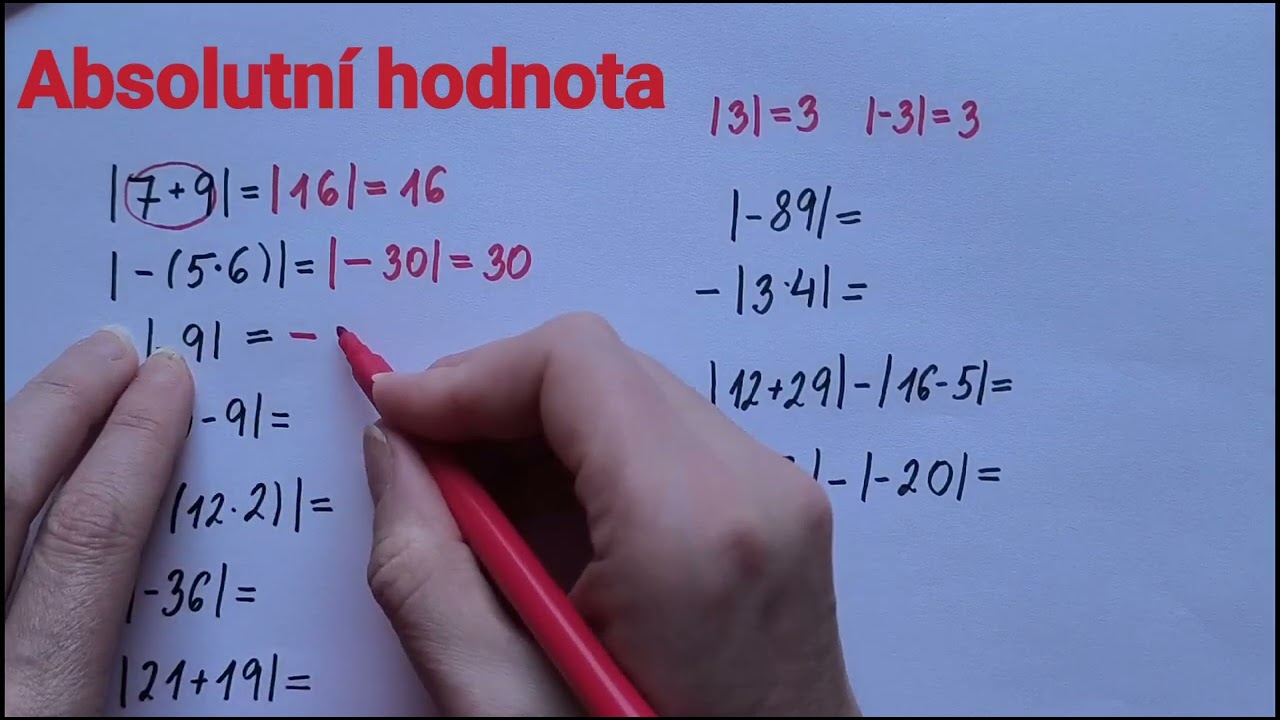 Absolutní hodnota
|3|=3 |-3|=3
|7+9|=|16|=16
|-(5·6)|=|-30|=30
|-9| = -
-9|=
(12·2)|=
|-36|=
|21+19|=
|-89|=
-|3·4|=
|12+29|-|16-5|=
|-|-20|=